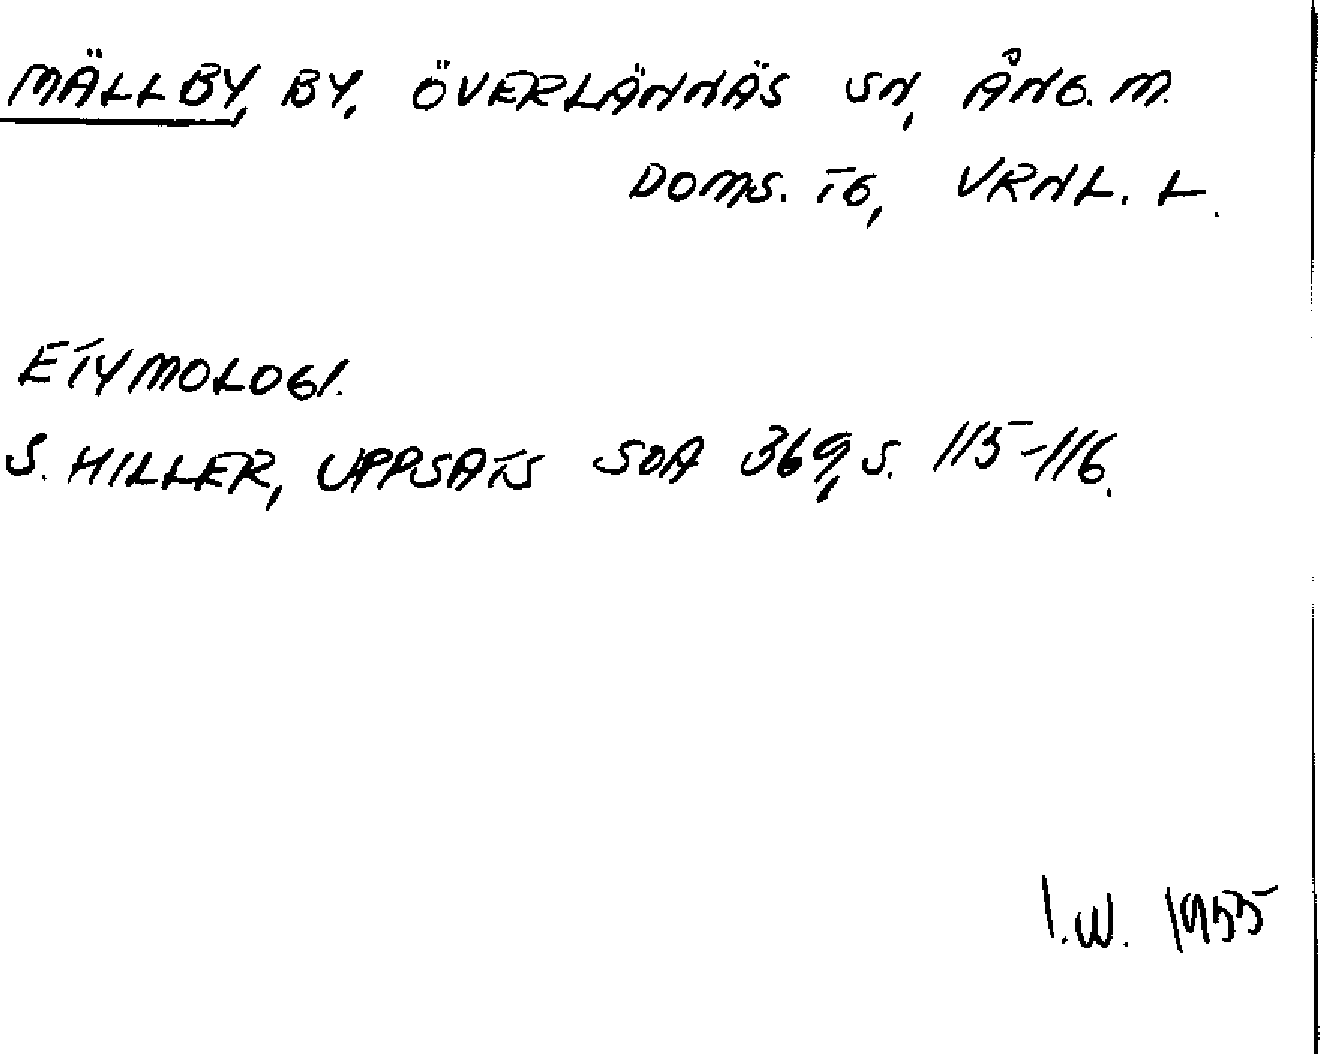 MÄLLBY, BY, ÖVERLÄNNÄS SN, ÅNG. M.
DOMS. TG, VRNL. L.
ETYMOLOGI.
S. HILLER, UPPSATS SOA 369, S. 115-116.
I.W. 1955